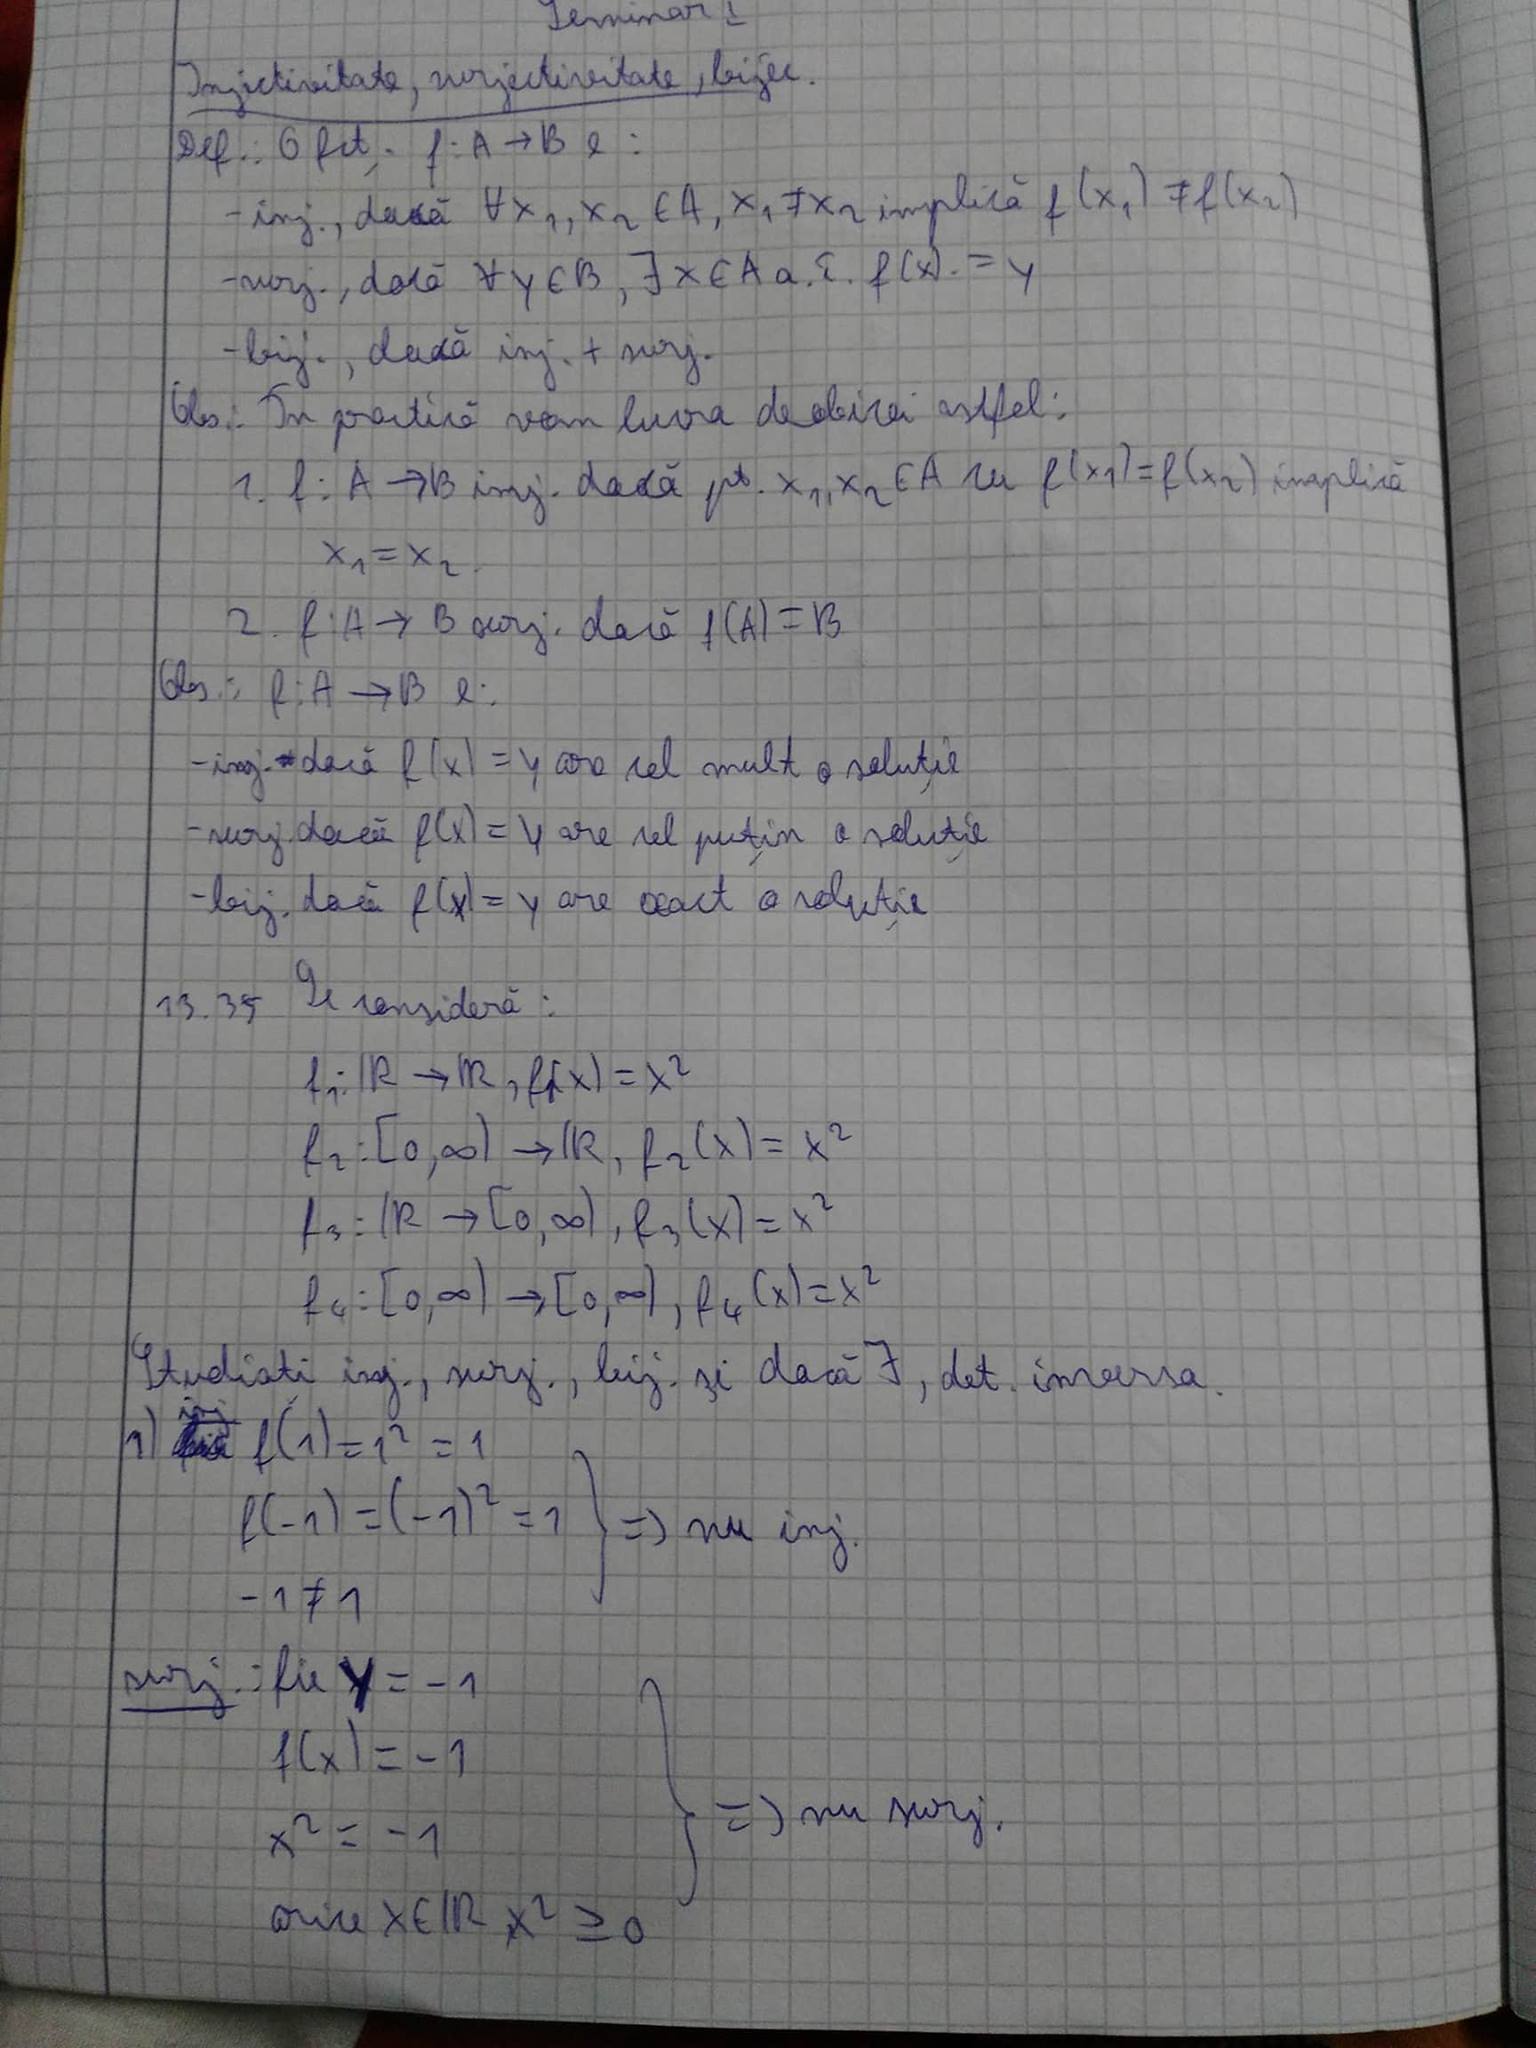 Seminar 1
Injectivitate, surjectivitate, bijec.
Def.: O fct. f: A → B e:
- inj., dacă ∀ x₁, x₂ ∈ A, x₁ ≠ x₂ implică f(x₁) ≠ f(x₂)
- surj., dacă ∀ y ∈ B, ∃ x ∈ A a. î. f(x) = y
- bij., dacă inj. + surj.
Obs.: În practică vom lucra de obicei astfel:
1. f: A → B inj. dacă pt. x₁, x₂ ∈ A cu f(x₁) = f(x₂) implică
x₁ = x₂.
2. f: A → B surj. dacă f(A) = B
Obs.: f: A → B e:
- inj. dacă f(x) = y are cel mult o soluție
- surj. dacă f(x) = y are cel puțin o soluție
- bij. dacă f(x) = y are exact o soluție
13.35 Se consideră:
f₁: ℝ → ℝ, f₁(x) = x²
f₂: [0, ∞) → ℝ, f₂(x) = x²
f₃: ℝ → [0, ∞), f₃(x) = x²
f₄: [0, ∞) → [0, ∞), f₄(x) = x²
Studiați inj., surj., bij. și dacă ∃, det. inversa.
1) inj f(1) = 1² = 1
f(-1) = (-1)² = 1 } => nu inj.
-1 ≠ 1
surj.: fie y = -1
f(x) = -1
x² = -1 } => nu surj.
orice x ∈ ℝ, x² ≥ 0